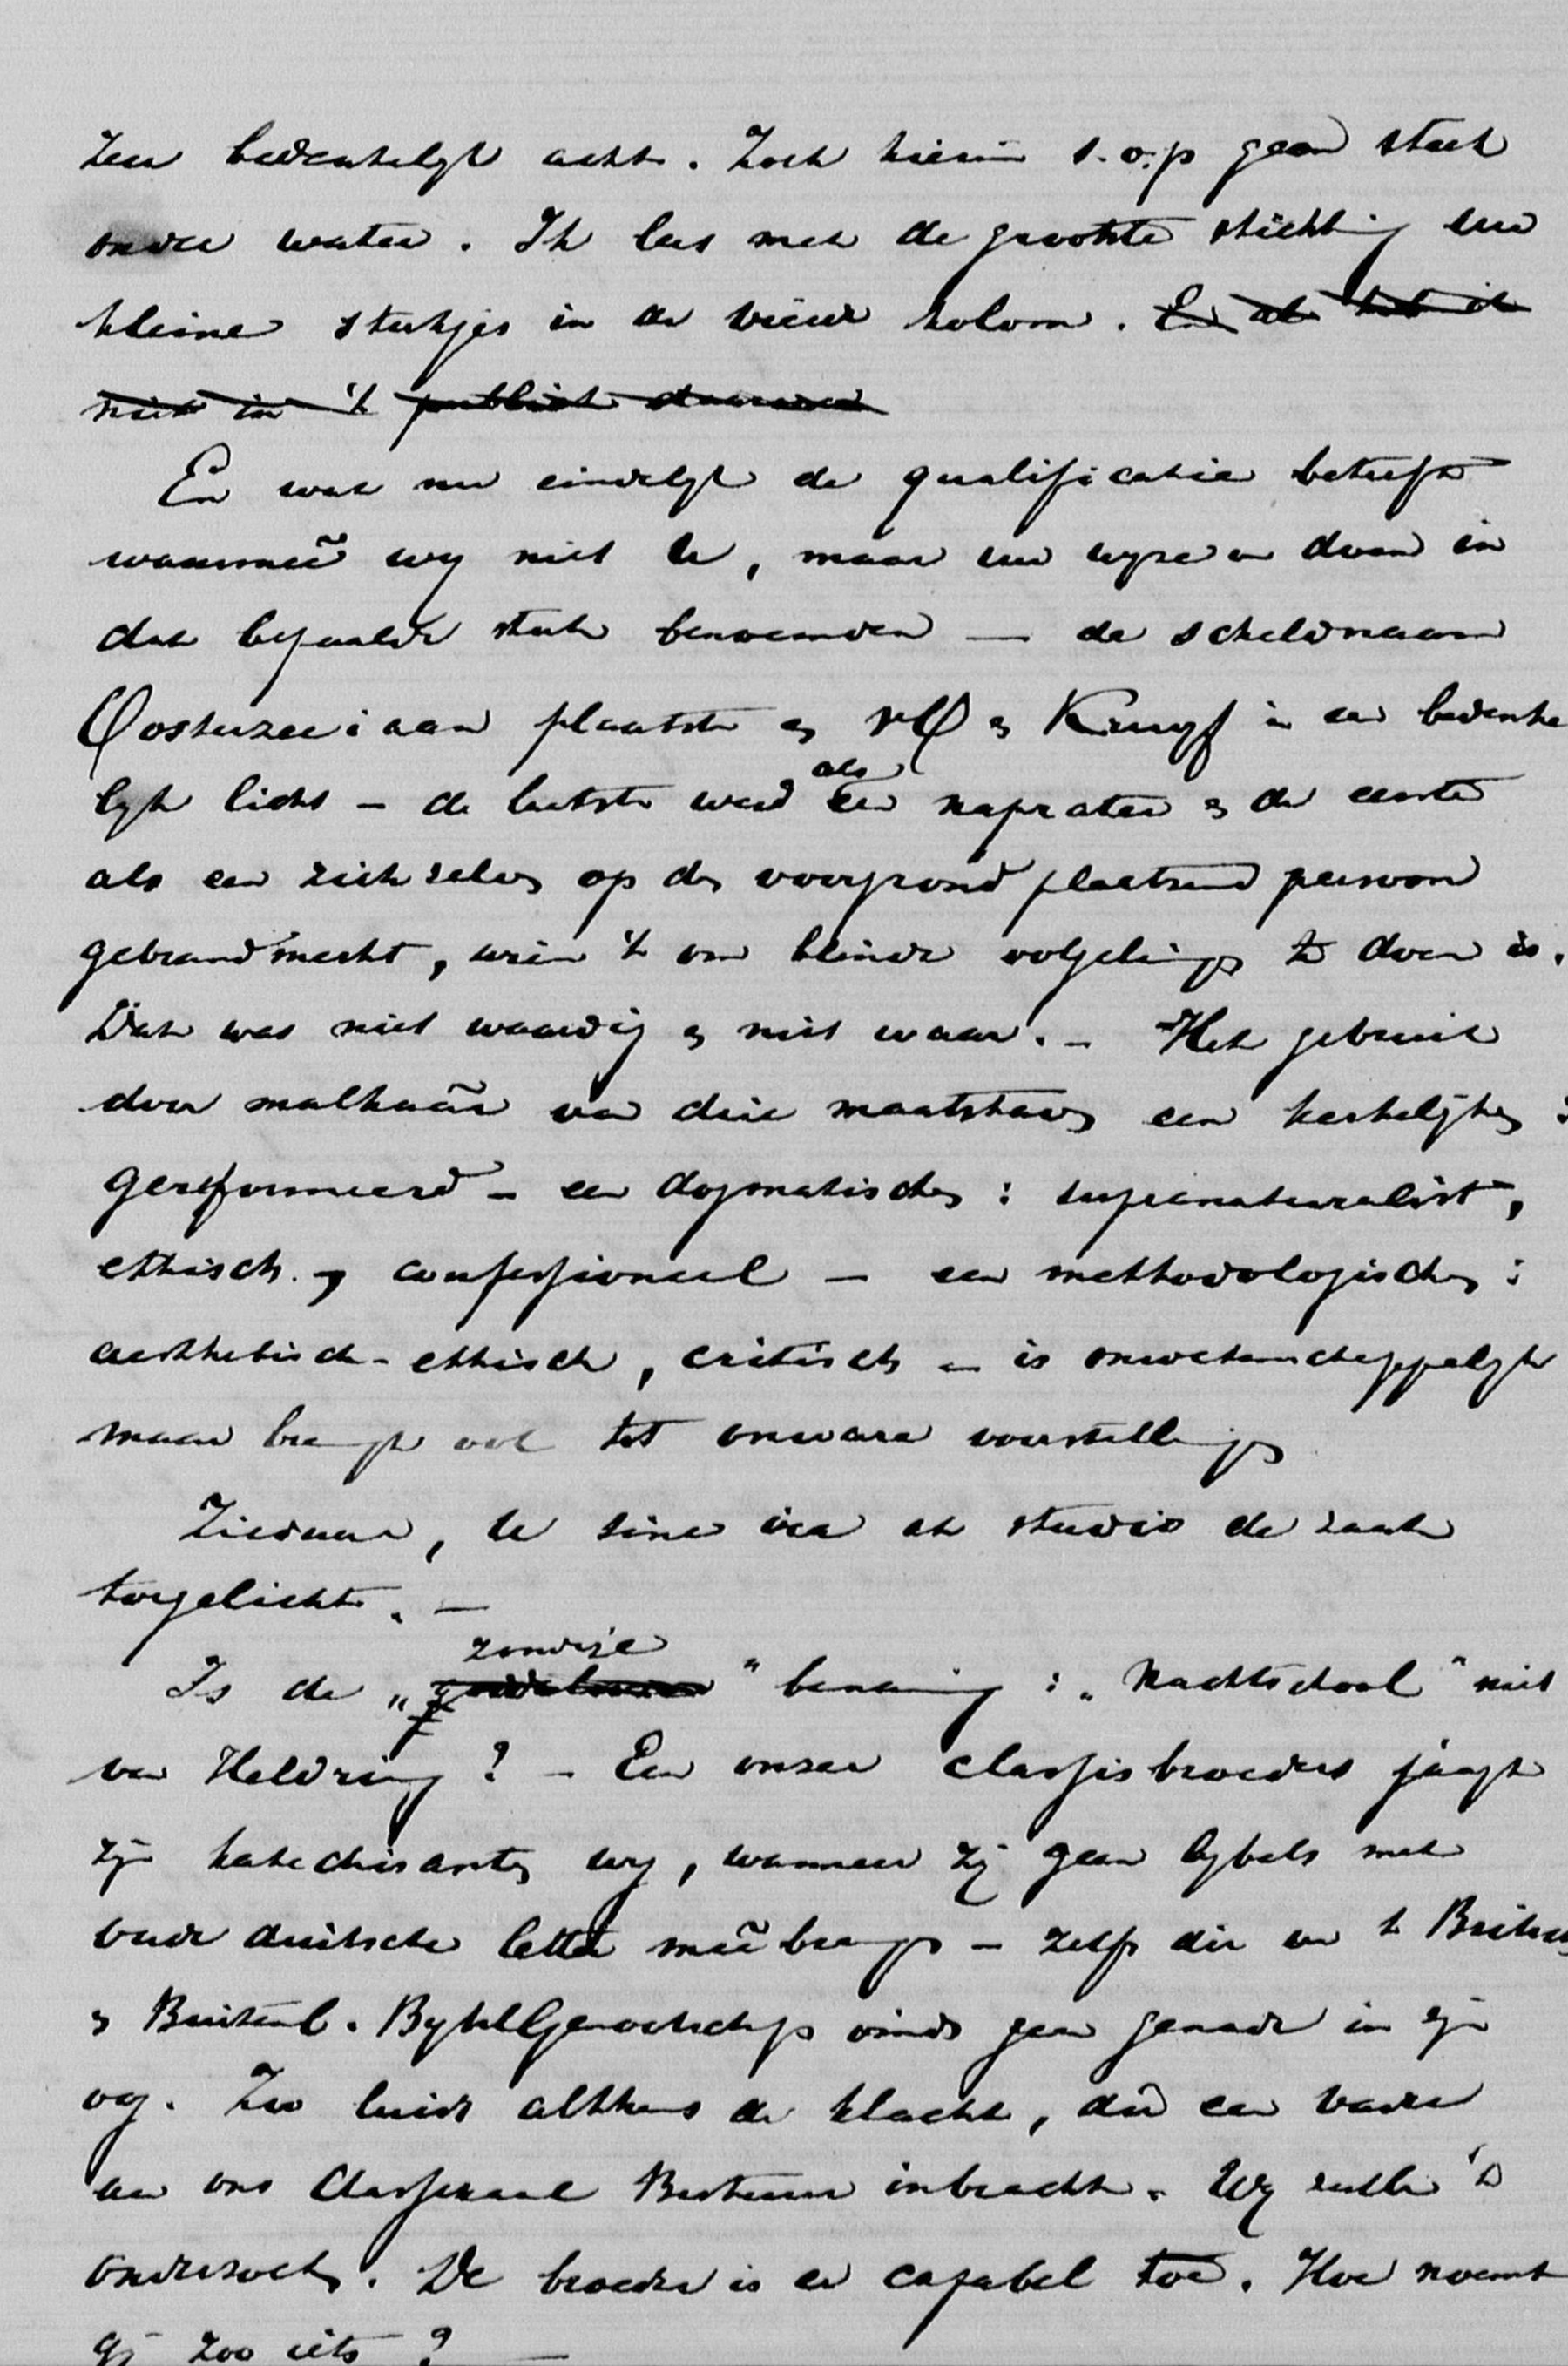 zeer bedenkelijk acht. Zoek hierin s.v.p. geen steek
onder water. Ik lees met de grootste stichting uw
kleine stukjes in de vierde kolom. En al heb ik
niet in 't publiek daarvan
En wat nu eindelijk de qualificatie betreft
waarmeê wij niet U, maar uw wijze van doen in
dat bepaalde stuk benoemden — de scheldnaam
Oosterzeeiaan plaatste en vO en Kruyf in een bedenke
lijk licht – de laatste werd als een naprater en de eerste
als een zich zelven op den voorgrond plaatsend persoon
gebrandmerkt, wien 't om blinde volgelingen te doen is.
Dat was niet waardig en niet waar. – Het gebruik
door malkaâr van drie maatstaven een kerkelijken :
gereformeerd – een dogmatischen : supranaturalist,
ethisch en confessioneel — een methodologischen :
aesthetisch-ethisch, critisch – is onwetenschappelijk
maar brengt ook tot onware voorstellingen
Ziedaar, U sine ira et studio de zaak
toegelicht. —
zondige
Is de „ " benaming : „Nachtschool" niet
van Heldring ? – Een onzer classisbroeders jaagt
zijn katechisanten weg, wanneer zij geen bijbels met
oude duitsche letter meê brengen – zelfs die van 't Britsch
en Buitenl. Bijbelgenootschap vindt geen genade in zijn
oog. Zoo luidt althans de klacht, die een vader
aan ons Classikaal Bestuur inbracht. Wij zullen 't
onderzoeken. De broeder is er capabel toe. Hoe noemt
gij zoo iets ? —